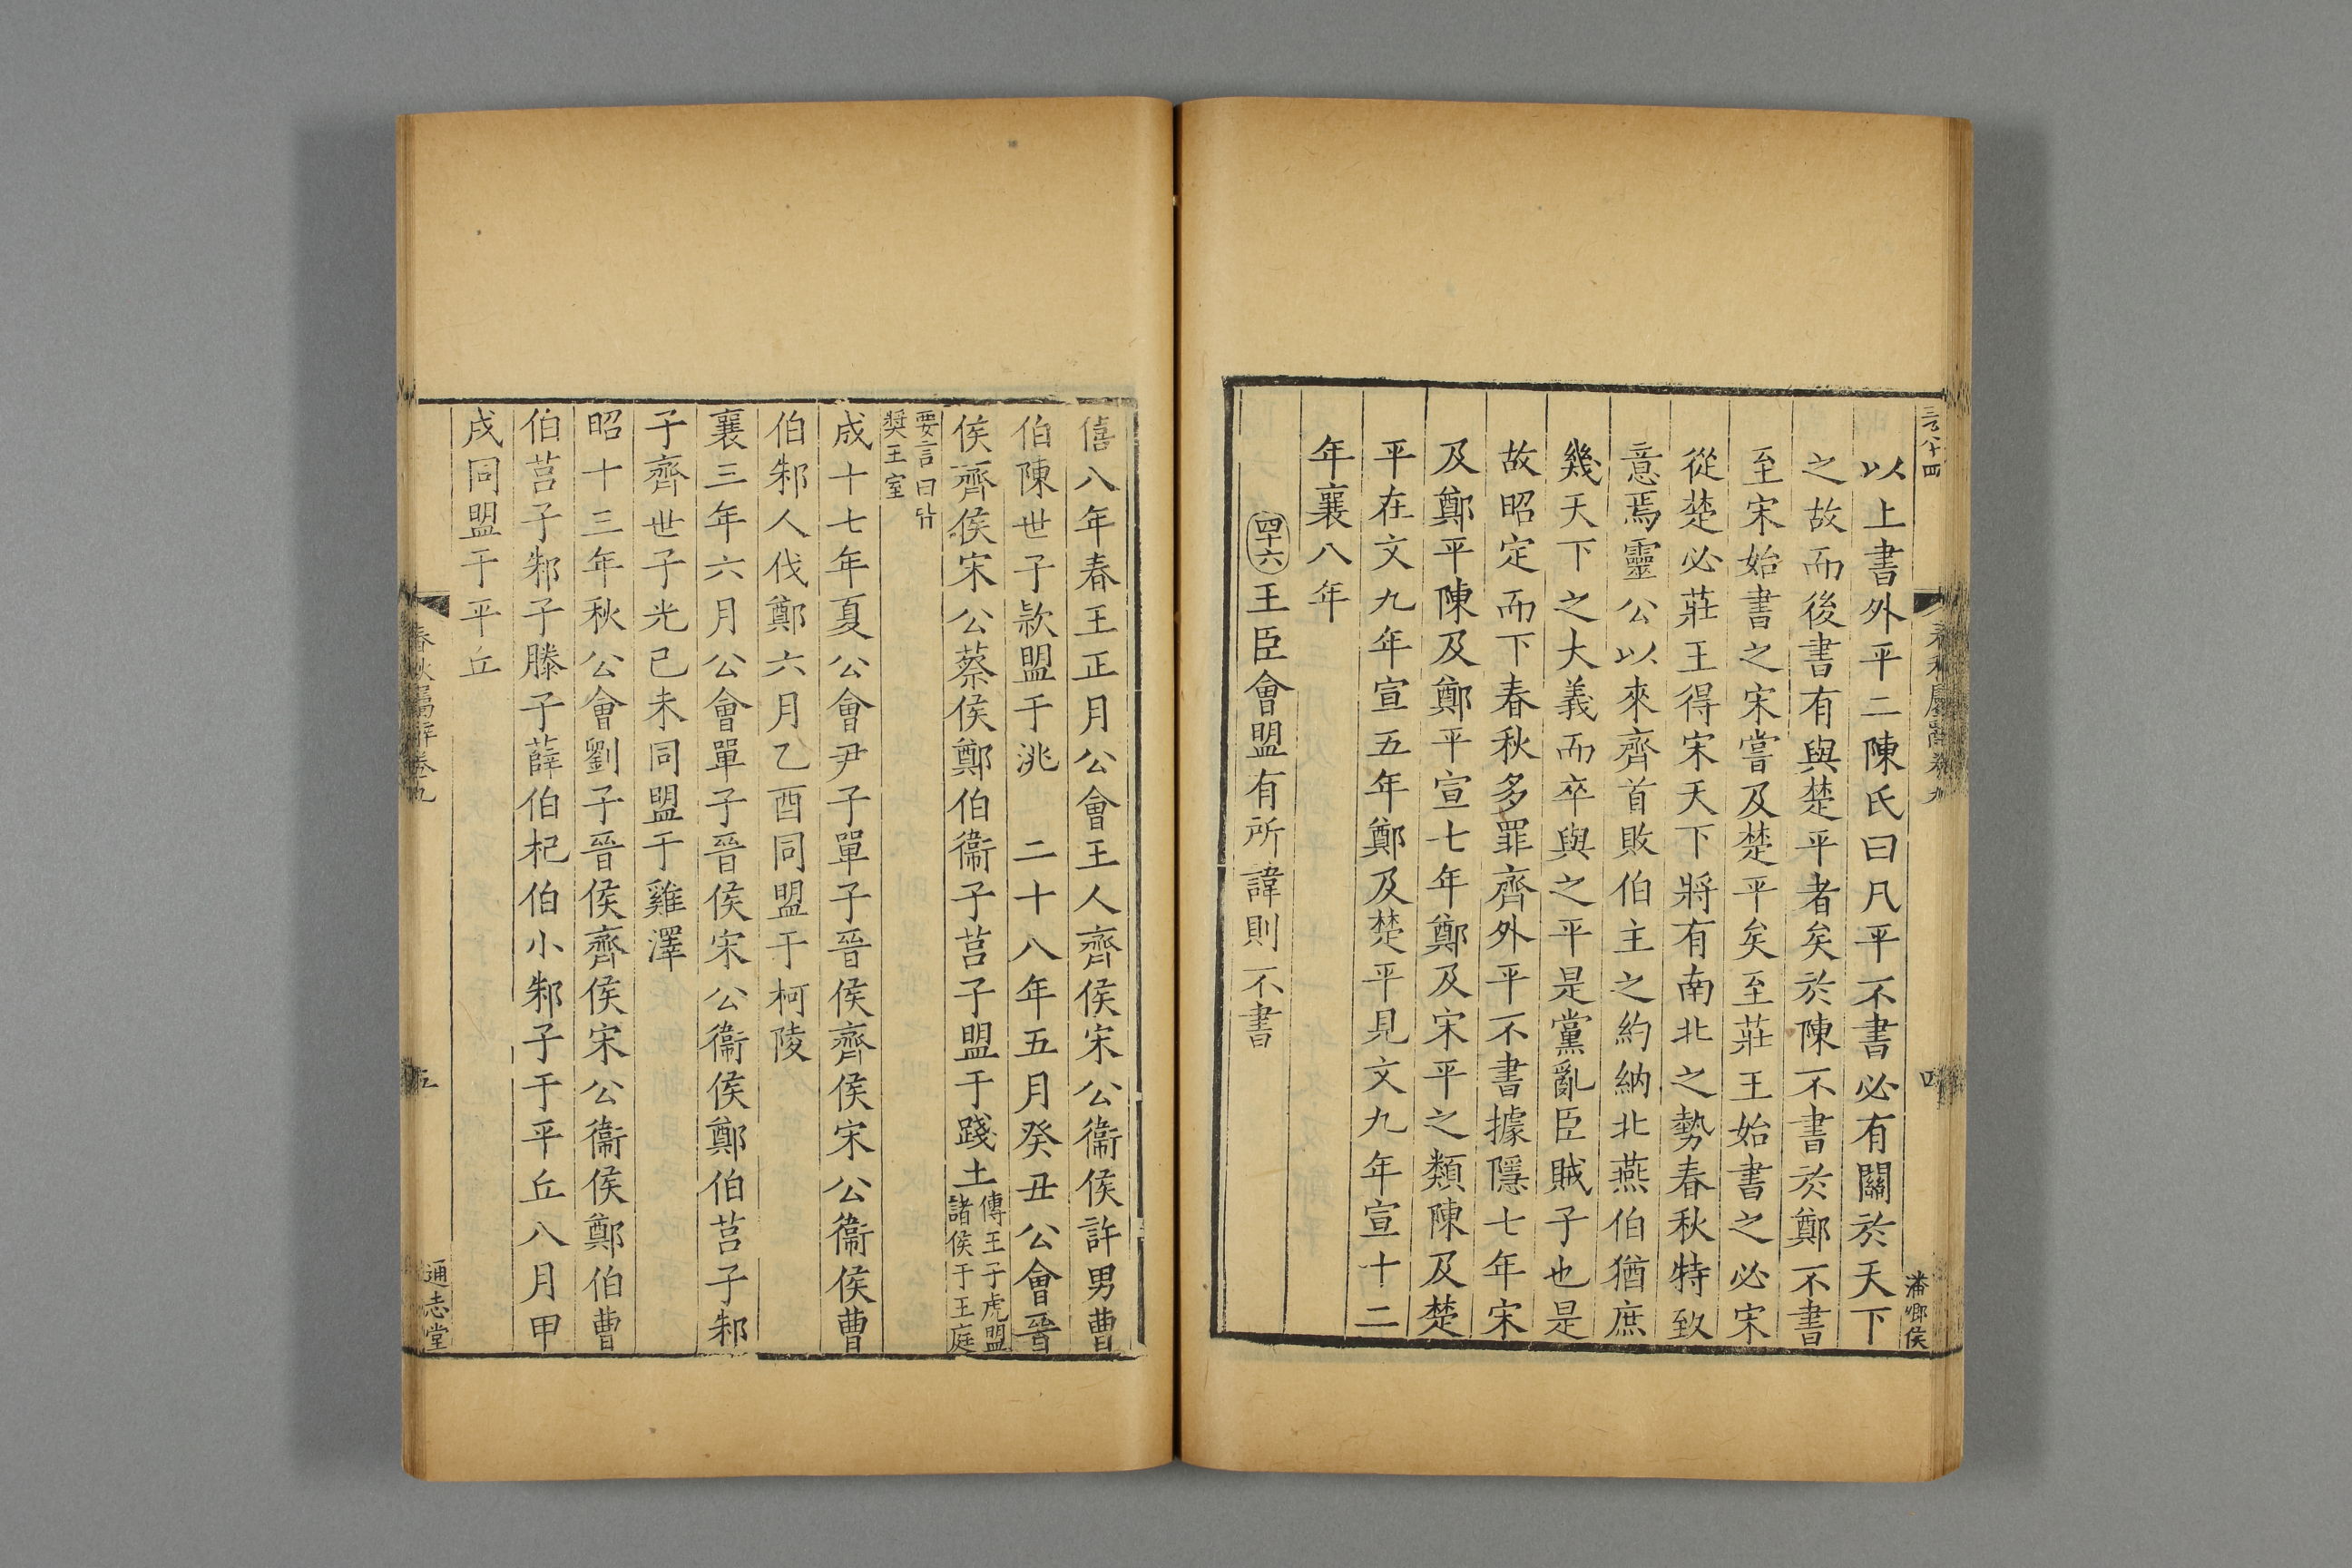 以上書外平二陳氏曰凡平不書必有關於天下
之故而後書有與楚平者矣於陳不書於鄭不書
至宋始書之宋嘗及楚平矣至莊王始書之必宋
從楚必莊王得宋天下將有南北之勢春秋特致
意焉靈公以來齊首敗伯主之約納北燕伯猶庶
幾天下之大義而卒與之平是黨亂臣賊子也是
故昭定而下春秋多罪齊外平不書據隱七年宋
及鄭平陳及鄭平宣七年鄭及宋平之類陳及楚
平在文九年宣五年鄭及楚平見文九年宣十二
年襄八年
四十六王臣會盟有所諱則不書
僖八年春王正月公會王人齊侯宋公衞侯許男曹
伯陳世子款盟于洮　二十八年五月癸丑公會晉
侯齊侯宋公蔡侯鄭伯衞子莒子盟于踐土傳王子虎盟諸侯于王庭
要言曰廾奬王室
成十七年夏公會尹子單子晉侯齊侯宋公衞侯曹
伯邾人伐鄭六月乙酉同盟于柯陵
襄三年六月公會單子晉侯宋公衞侯鄭伯莒子邾
子齊世子光己未同盟于雞澤
昭十三年秋公會劉子晉侯齊侯宋公衞侯鄭伯曹
伯莒子邾子滕子薛伯杞伯小邾子于平丘八月甲
戌同盟于平丘
春秋屬辭卷九
五
通志堂